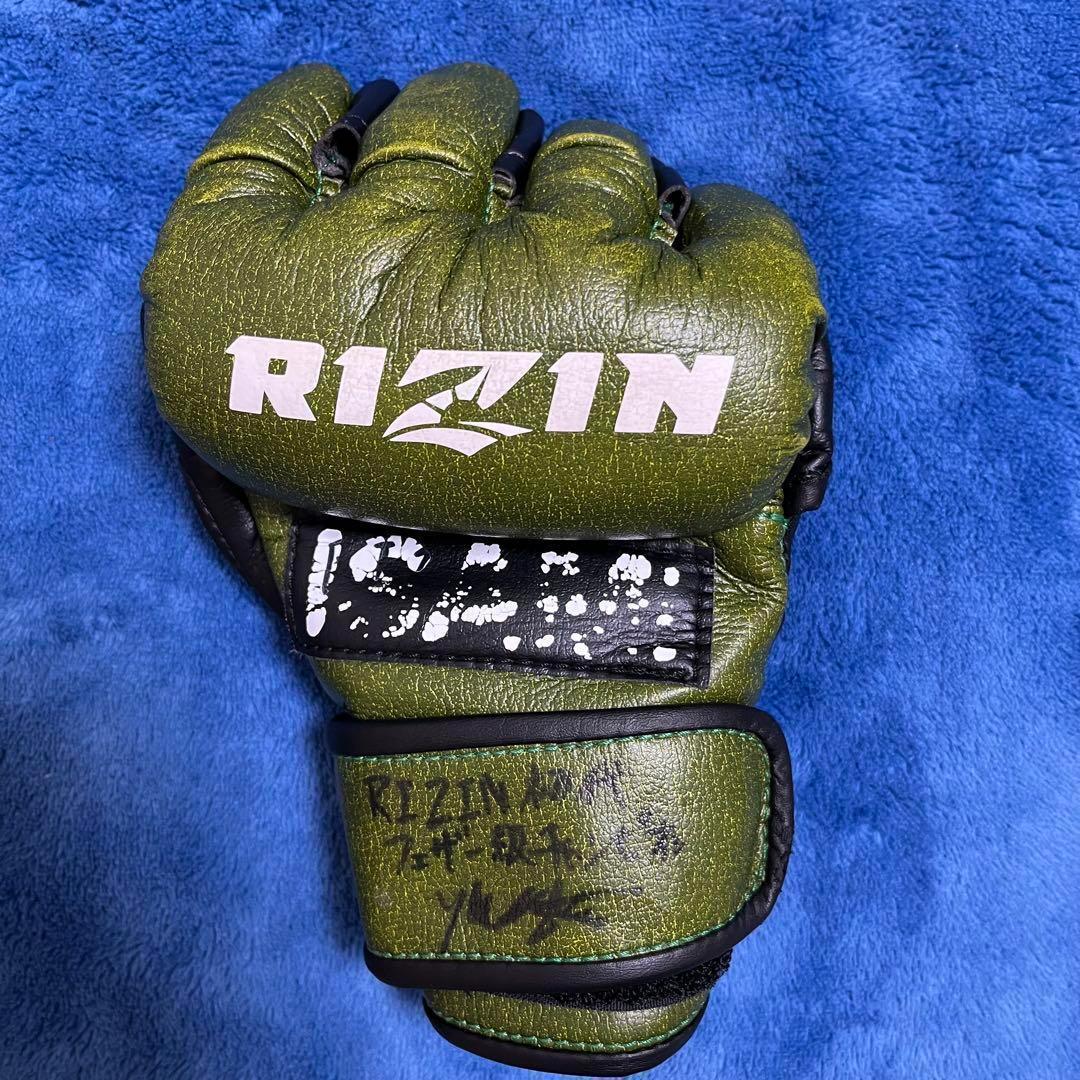 RIZIN
ISAMI
RIZIN 初代
フェザー級チャンピオン